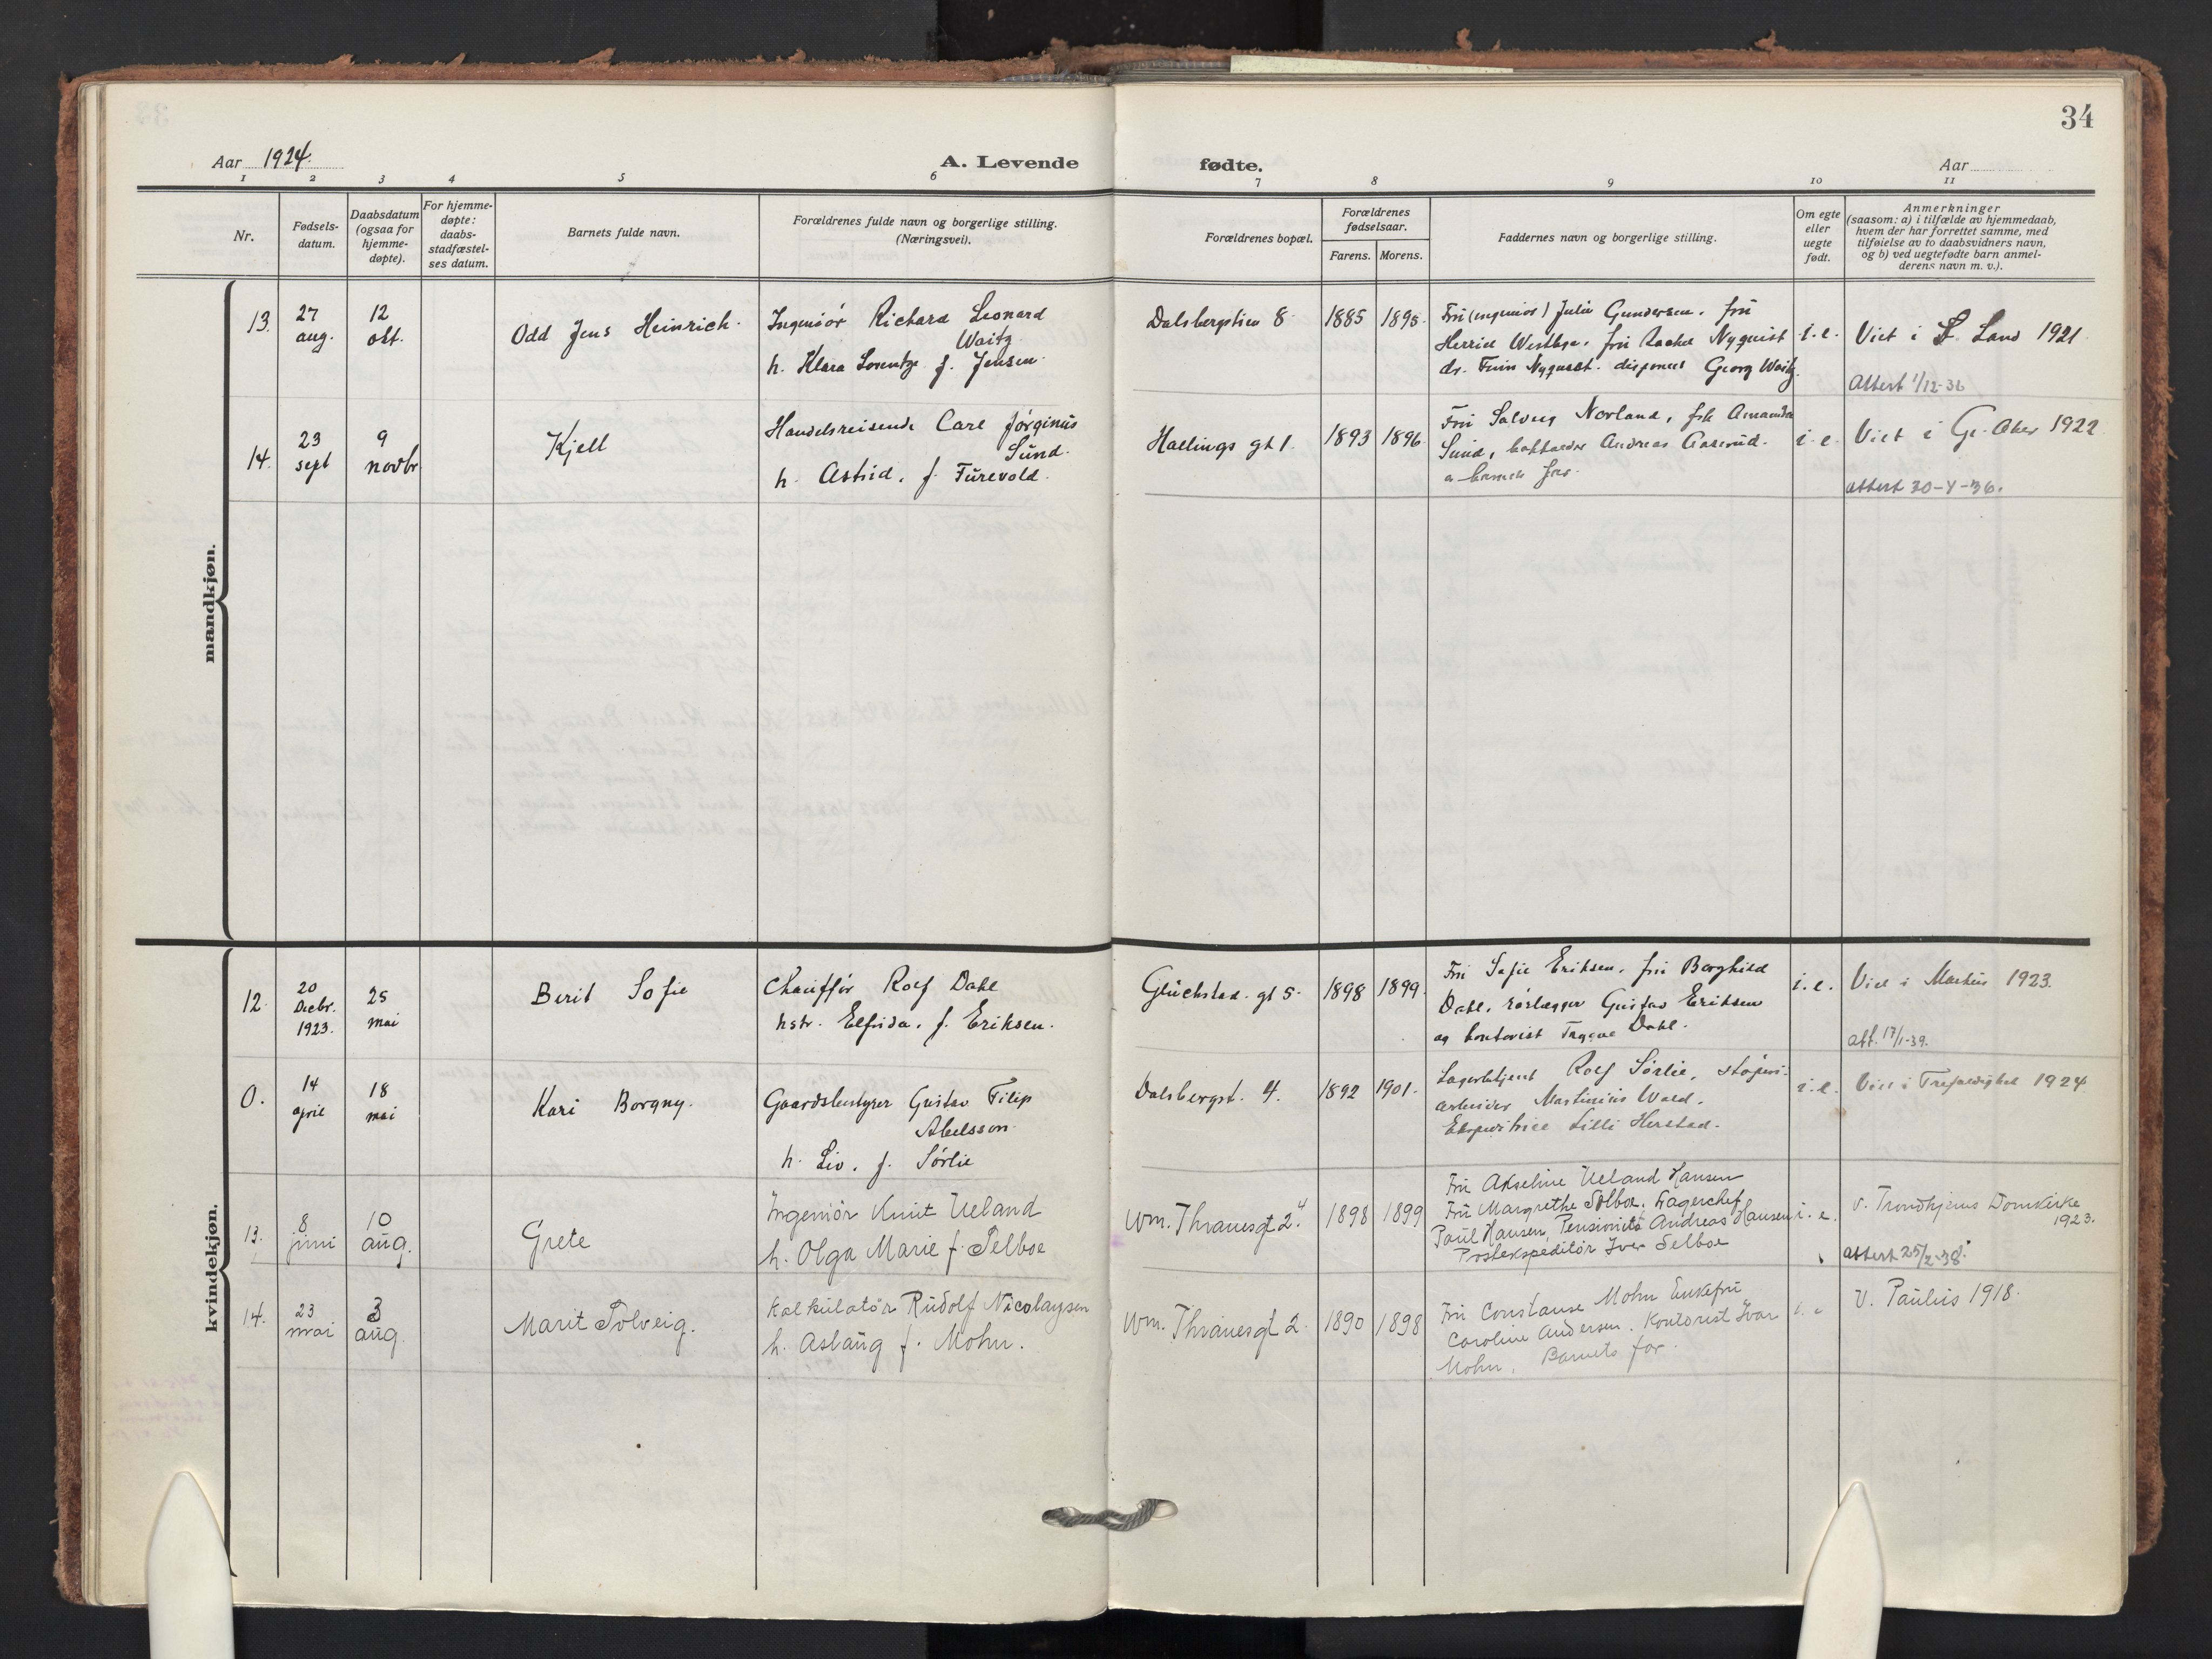 34
Aar 1924.
A. Levende fødte.
Aar
1 2 3 4 5 6 7 8 9 10 11
Nr.
Fødsels-
datum.
Daabsdatum
(ogsaa for
hjemme-
døpte).
For hjemme-
døpte:
daabs-
stadfæstel-
ses datum.
Barnets fulde navn.
Forældrenes fulde navn og borgerlige stilling.
(Næringsvei).
Forældrenes bopæl.
Forældrenes
fødselsaar.
Farens. Morens.
Faddernes navn og borgerlige stilling.
Om egte
eller
uegte
født.
Anmerkninger
(saasom: a) i tilfælde av hjemmedaab,
hvem der har forrettet samme, med
tilføielse av to daabsvidners navn,
og b) ved uegtefødte barn anmel-
derens navn m. v.).
mandkjøn.
13.
27
aug.
12
okt.
Odd Jens Heinrich.
Ingeniør Richard Leonard
Waitz
h. Klara Lorentze f. Jensen.
Dalsbergstien 8
1885 1898.
Fru (ingeniør) Julie Gundersen, fru
Westbye, fru Rachel Nyquist
dr. Finn Nyquist. disponent Georg Waitz.
i. e.
Viet i S. Land 1921
Attest 1/12-36
14.
23
sept
9
novbr
Kjell
Handelsreisende Carl Jørginus
Sund.
h. Astrid, f. Furevold.
Hallings gt 1.
1893 1896
Fru Solveig Norland, frk Amanda
Sund, Andreas Aaserud.
barnets far.
i. e.
Viet i Gr. Aker 1922
attest 30-4-36.
kvindekjøn.
12.
20
Decbr.
1923.
25
mai
Berit Sofie
Chauffør Rolf Dahl
hstr. Elfrida, f. Eriksen.
Glückstad. gt 5.
1898 1899.
Fru Sofie Eriksen, fru Borghild
Dahl, rørlægger Gustav Eriksen
og kontorist Trygve Dahl.
i. e.
Viet i Markus 1923.
att. 17/1-39.
0.
14
april
18
mai
Kari Borgny.
Gaardsbestyrer Gustav Filip
Abelsson.
h. Liv, f. Sørlie
Dalsbergst. 4.
1892 1901.
Lagerbetjent Rolf Sørlie, støperi-
arbeider Martinius Wold,
Ekspeditrice Lilli Herstad.
i. e.
Viet i Trefoldighet 1924
13.
8
juni
10
aug.
Grete
Ingeniør Knut Ueland
h. Olga Marie f. Selboe
Wm. Thranesgt 24.
1898 1899
Fru Akseline Ueland Hansen
Fru Margrethe Selboe, Lagerchef
Paul Hansen, Pensionist Andreas Hansen
Postekspeditør Iver Selboe
i. e.
v. Trondhjems Domkirke
1923.
attest 25/2-38.
14.
23
mai
3
aug.
Marit Solveig.
Kalkulatør Rudolf Nicolaysen
h. Aslaug f. Mohn.
Wm. Thranesgt 2.
1890 1898
Fru Constanse Mohn Enkefru
Caroline Andersen. Kontorist Ivar
Mohn, Barnets far.
i. e
V. Paulus 1918.